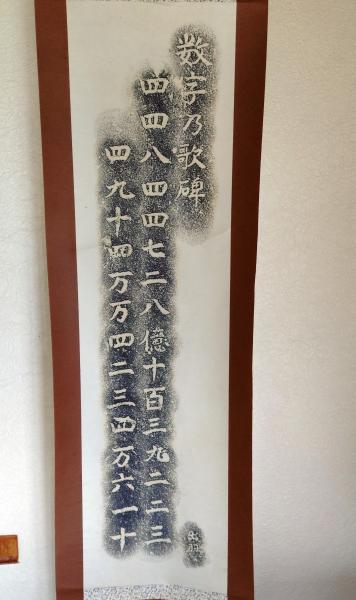 数字乃歌碑
四四八四四七二八億十百三九二二三
四九十四万万四二三四万六一十